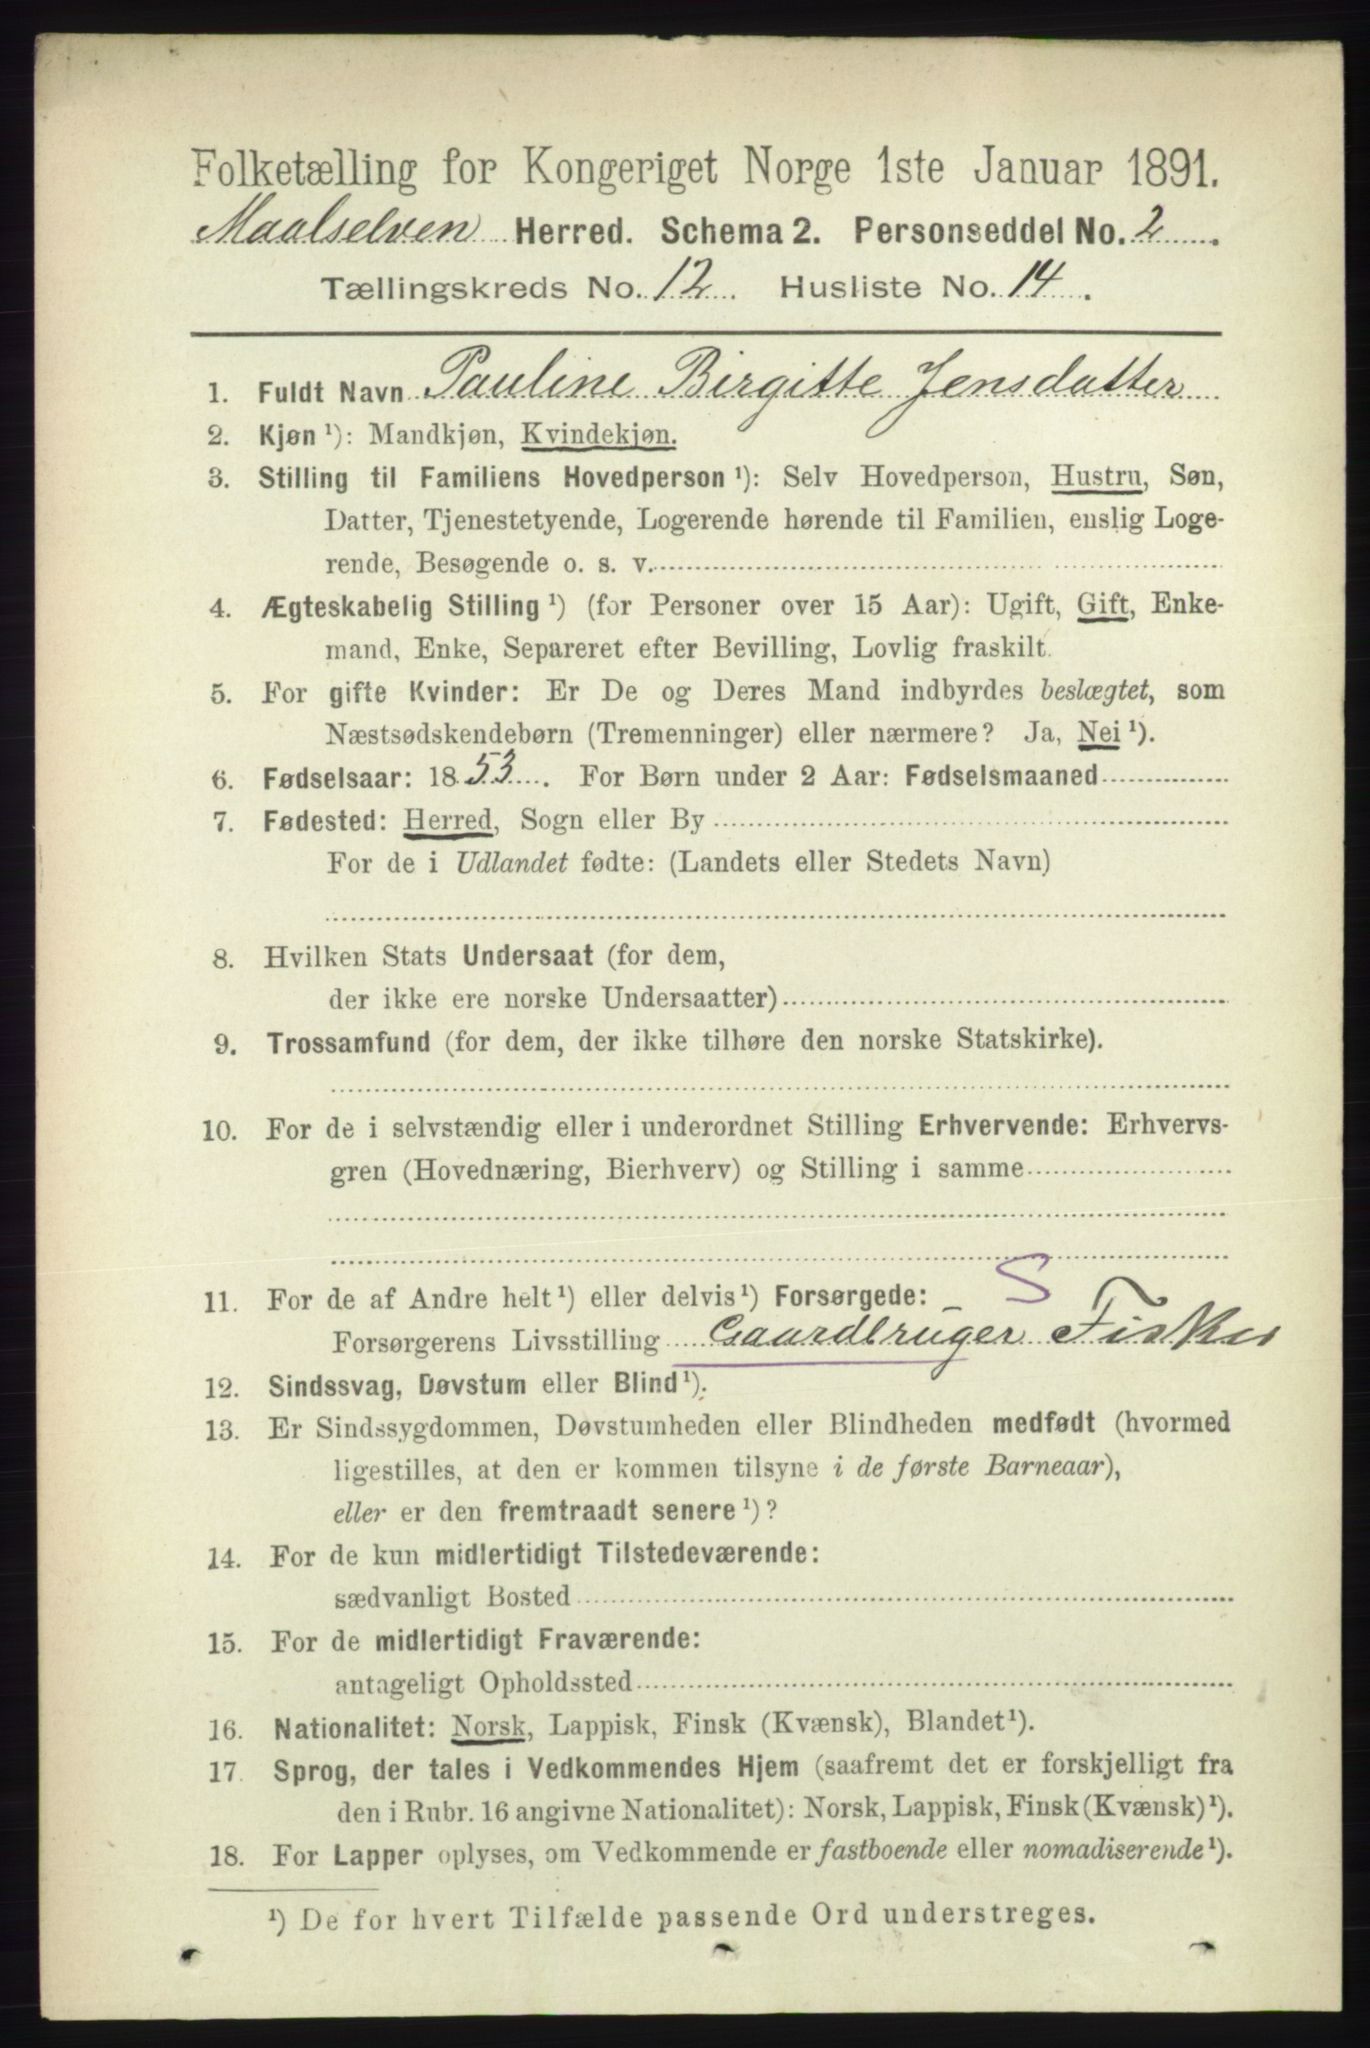 Folketælling for Kongeriget Norge 1ste Januar 1891.
Maalselven Herred. Schema 2. Personseddel No. 2.
Tællingskreds No. 12. Husliste No. 14.
1. Fuldt Navn Pauline Birgitte Jensdatter
2. Kjøn ¹): Mandkjøn, Kvindekjøn.
3. Stilling til Familiens Hovedperson ¹): Selv Hovedperson, Hustru, Søn,
Datter, Tjenestetyende, Logerende hørende til Familien, enslig Loge-
rende, Besøgende o. s. v.
4. Ægteskabelig Stilling ¹) (for Personer over 15 Aar): Ugift, Gift, Enke-
mand, Enke, Separeret efter Bevilling, Lovlig fraskilt.
5. For gifte Kvinder: Er De og Deres Mand indbyrdes beslægtet, som
Næstsødskendebørn (Tremenninger) eller nærmere? Ja, Nei ¹).
6. Fødselsaar: 1853. For Børn under 2 Aar: Fødselsmaaned
7. Fødested: Herred, Sogn eller By
For de i Udlandet fødte: (Landets eller Stedets Navn)
8. Hvilken Stats Undersaat (for dem,
der ikke ere norske Undersaatter)
9. Trossamfund (for dem, der ikke tilhøre den norske Statskirke).
10. For de i selvstændig eller i underordnet Stilling Erhvervende: Erhvervs-
gren (Hovednæring, Bierhverv) og Stilling i samme
11. For de af Andre helt ¹) eller delvis ¹) Forsørgede: S
Forsørgerens Livsstilling Gaardbruger Fisker
12. Sindssvag, Døvstum eller Blind ¹).
13. Er Sindssygdommen, Døvstumheden eller Blindheden medfødt (hvormed
ligestilles, at den er kommen tilsyne i de første Barneaar),
eller er den fremtraadt senere ¹)?
14. For de kun midlertidigt Tilstedeværende:
sædvanligt Bosted
15. For de midlertidigt Fraværende:
antageligt Opholdssted
16. Nationalitet: Norsk, Lappisk, Finsk (Kvænsk), Blandet ¹).
17. Sprog, der tales i Vedkommendes Hjem (saafremt det er forskjelligt fra
den i Rubr. 16 angivne Nationalitet): Norsk, Lappisk, Finsk (Kvænsk) ¹).
18. For Lapper oplyses, om Vedkommende er fastboende eller nomadiserende ¹).
¹) De for hvert Tilfælde passende Ord understreges.